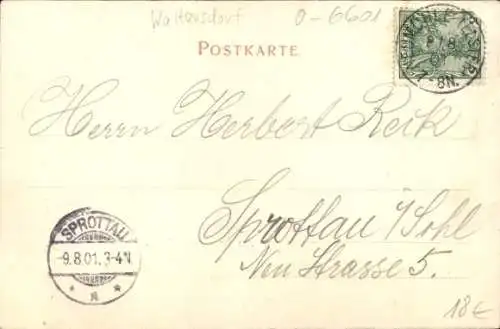 Waltersdorf 0-6601
POSTKARTE
8N.
Herrn Herbert Reik
Sprottau i/Schl
Neu Strasse 5.
SPROTTAU
-9.8.01. 3-4N
* N *
18€